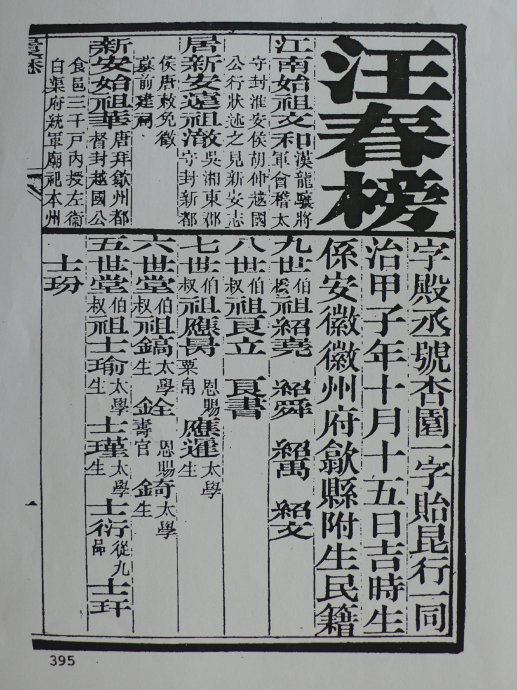 汪春榜
字殿丞號杏園一字貽昆行一同
治甲子年十月十五日吉時生
係安徽徽州府歙縣附生民籍
江南始祖文和漢龍驤將軍會稽太
守封淮安侯胡仲越國
公行狀述之見新安志
居新安遠祖澈吳湘東郡守封新都
侯唐敕免徵
墓前建祠
新安始祖華唐拜歙州都督封越國公
食邑三千戶內授左衛
白渠府統軍廟祀本州
九世伯叔祖紹堯 紹舜 紹萬 紹文
八世伯叔祖良立 良書
七世伯叔祖應昺恩賜粟帛 應暹太學生
六世堂伯叔祖鎬太學生 銓恩賜壽官 錡太學生
五世堂伯叔祖士瑜太學生 士瑾太學生 士衍從九品 士玕
士玢
一
395